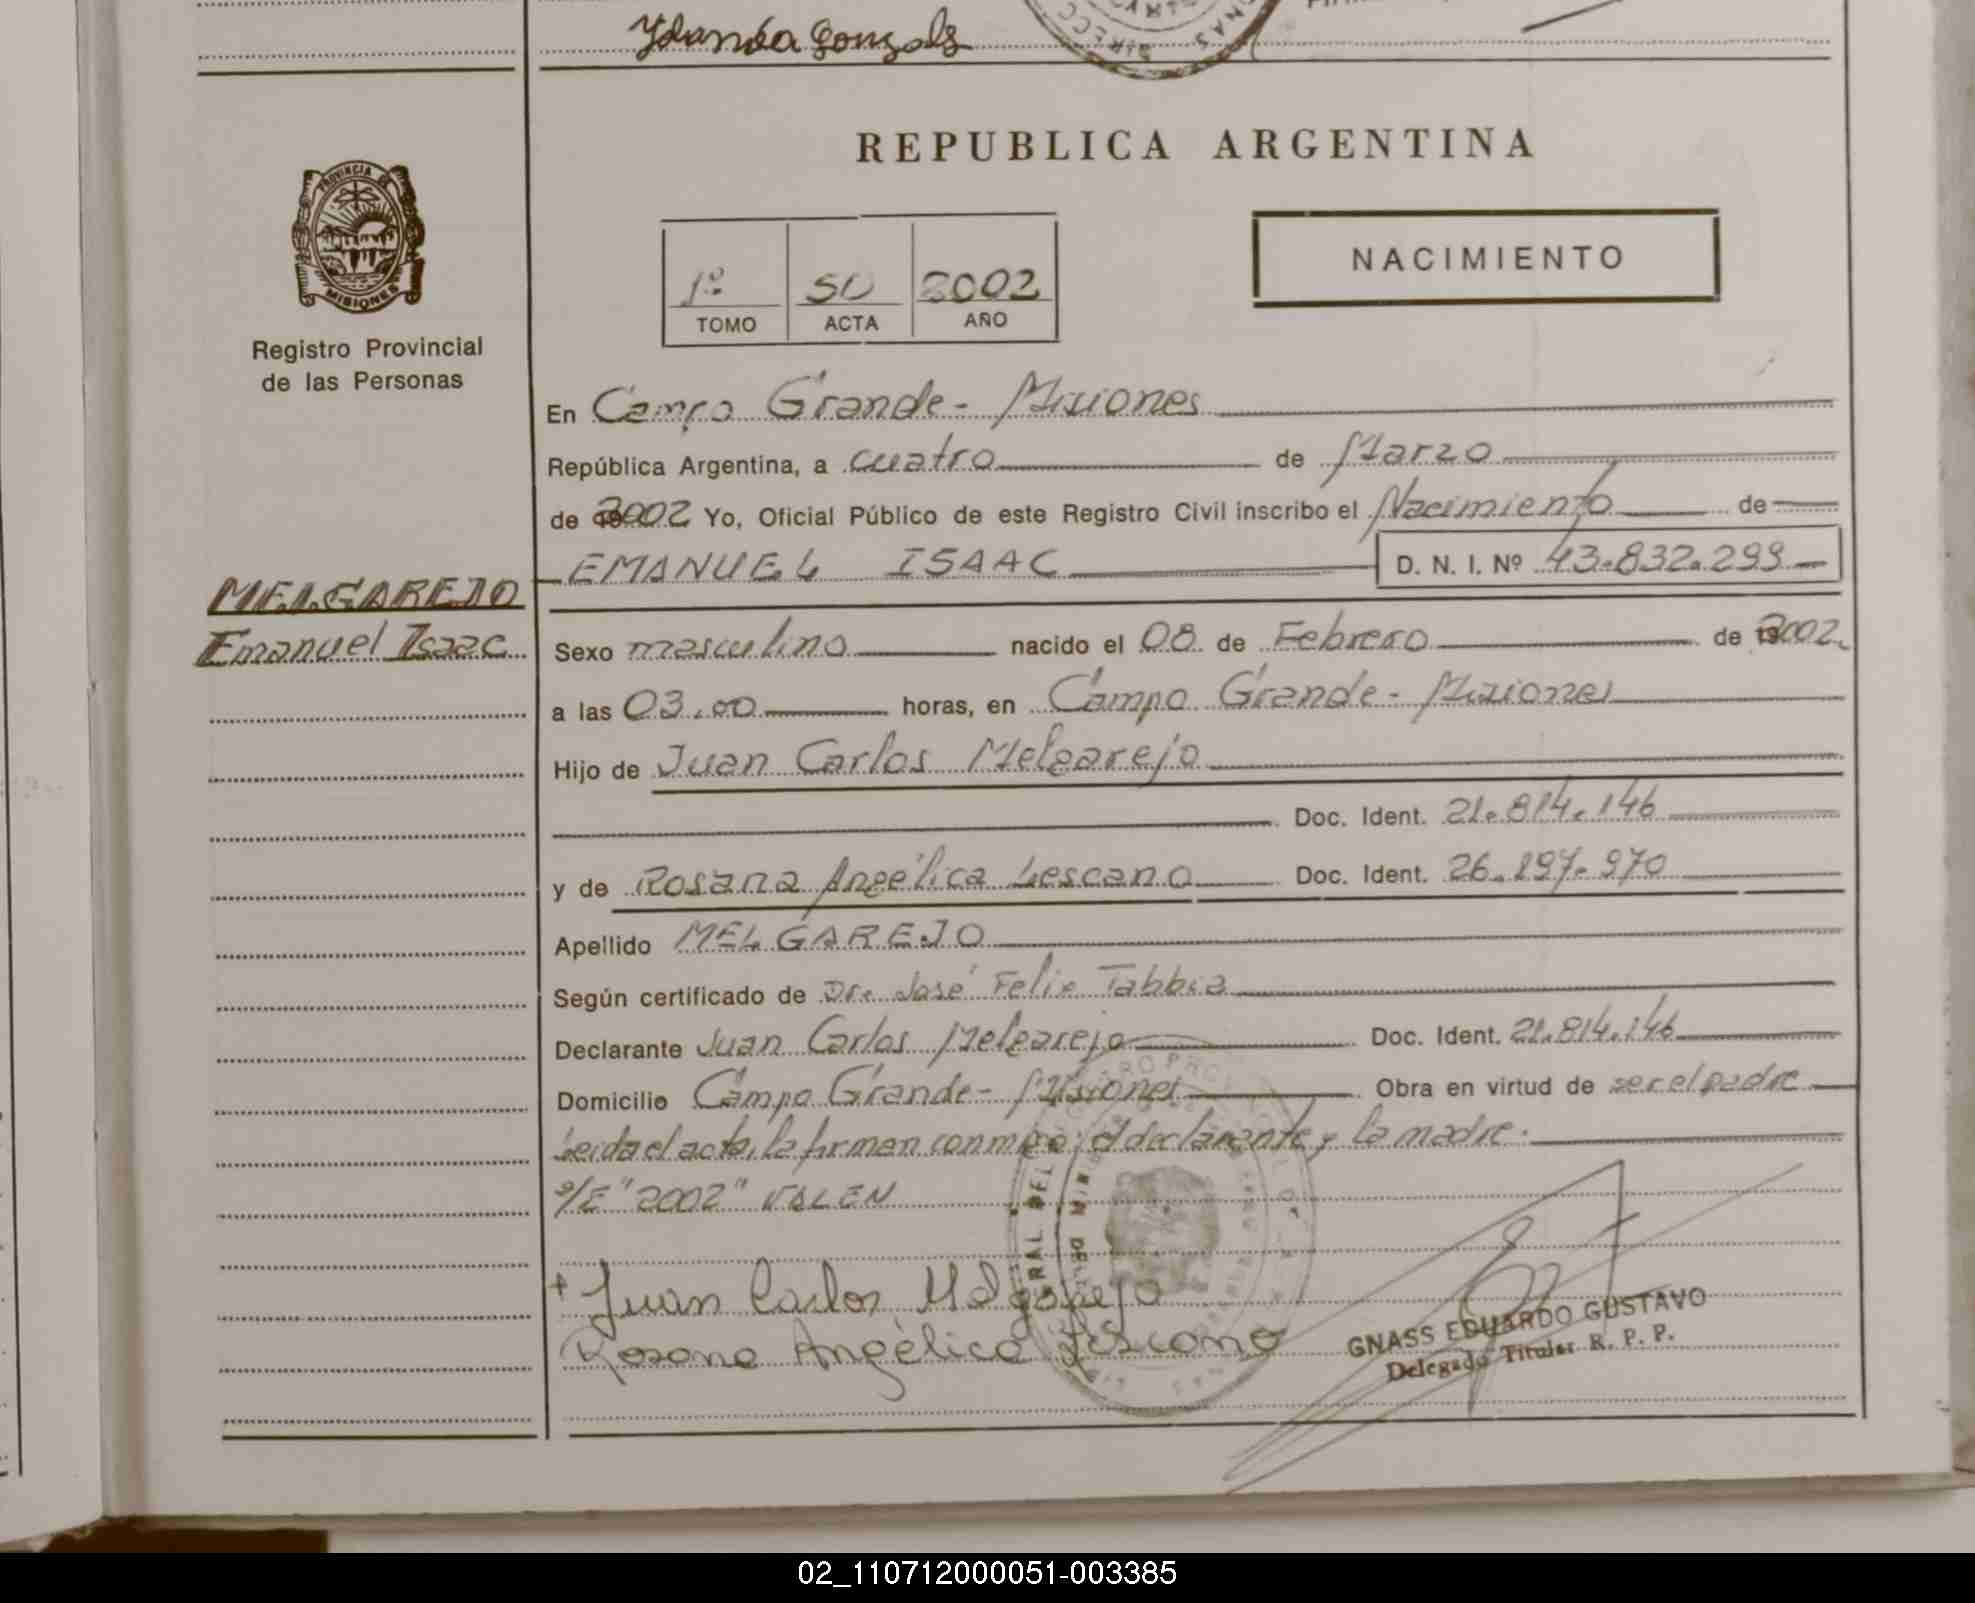 Yolanda Gonzalz
REPUBLICA ARGENTINA
PROVINCIA DE
MISIONES
Registro Provincial
de las Personas
1º 50 2002
TOMO ACTA AÑO
NACIMIENTO
En Campo Grande - Misiones
República Argentina, a cuatro de Marzo
de 2002 Yo, Oficial Público de este Registro Civil inscribo el Nacimiento de
EMANUEL ISAAC D. N. I. Nº 43.832.299
MELGAREJO
Emanuel Isaac
Sexo masculino nacido el 08 de Febrero de 2002
a las 03.00 horas, en Campo Grande - Misiones
Hijo de Juan Carlos Melgarejo
Doc. Ident. 21.814.146
y de Rosana Angélica Lescano Doc. Ident. 26.197.970
Apellido MELGAREJO
Según certificado de Dr. José Felix Tabbia
Declarante Juan Carlos Melgarejo Doc. Ident. 21.814.146
Domicilio Campo Grande - Misiones Obra en virtud de ser el padre
Leida el acta, la firman conmigo: el declarante y la madre.
s/E "2002" VALEN
+ Juan Carlos Melgarejo
Rosana Angélica Lescano
GNASS EDUARDO GUSTAVO
Delegado Titular R. P. P.
02_110712000051-003385